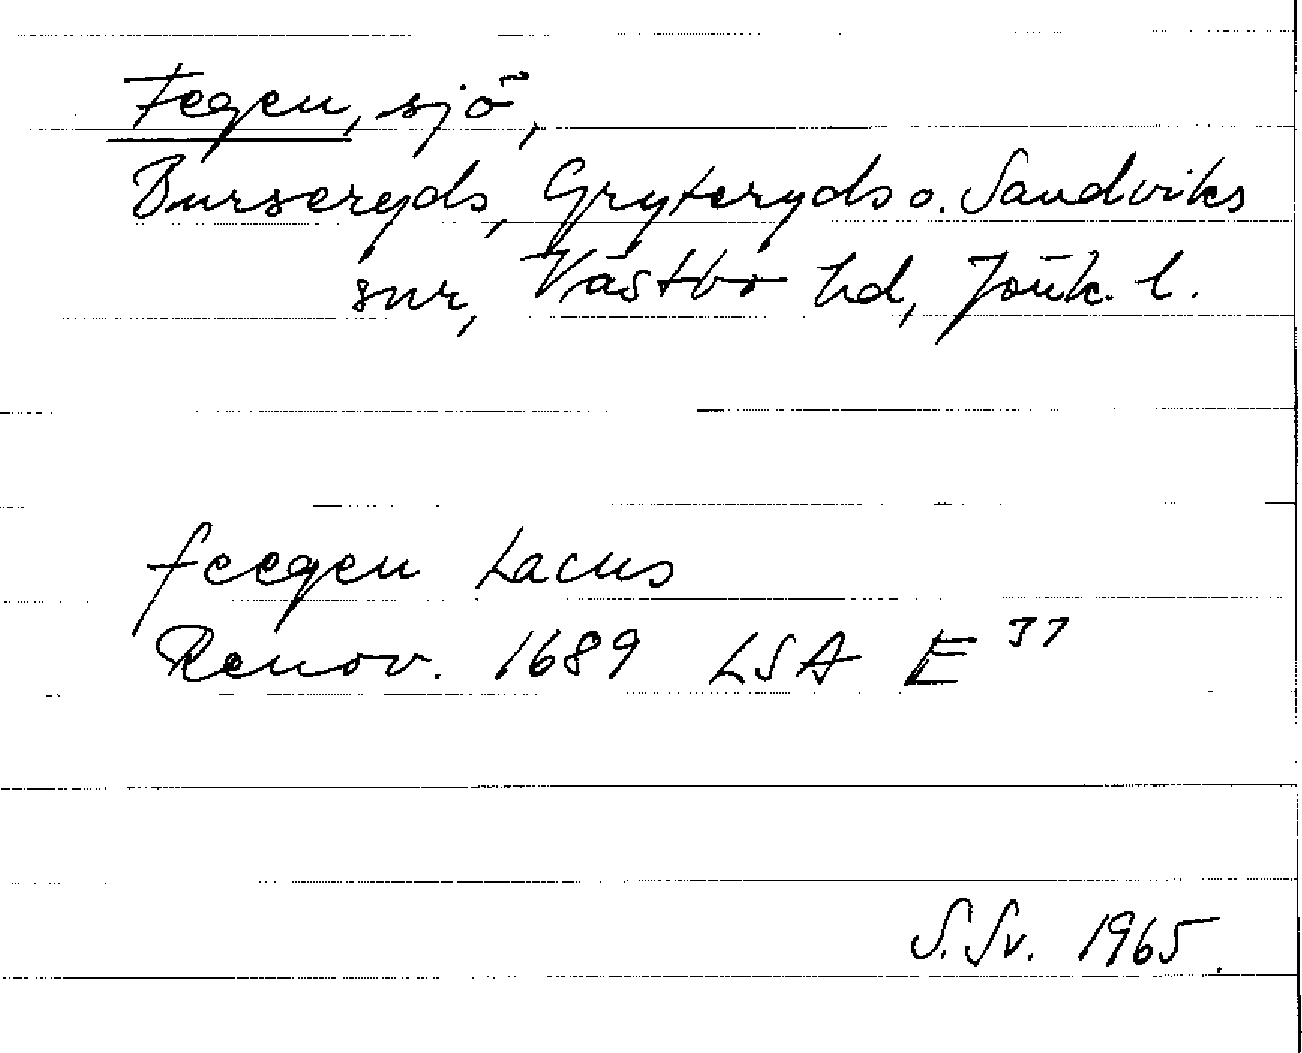 Fegen, sjö,
Burseryds, Gryteryds o. Sandviks
snr, Västbo hd, Jönk. l.
feegen Lacus
Renov. 1689 LSA E 37
S. Sv. 1965.